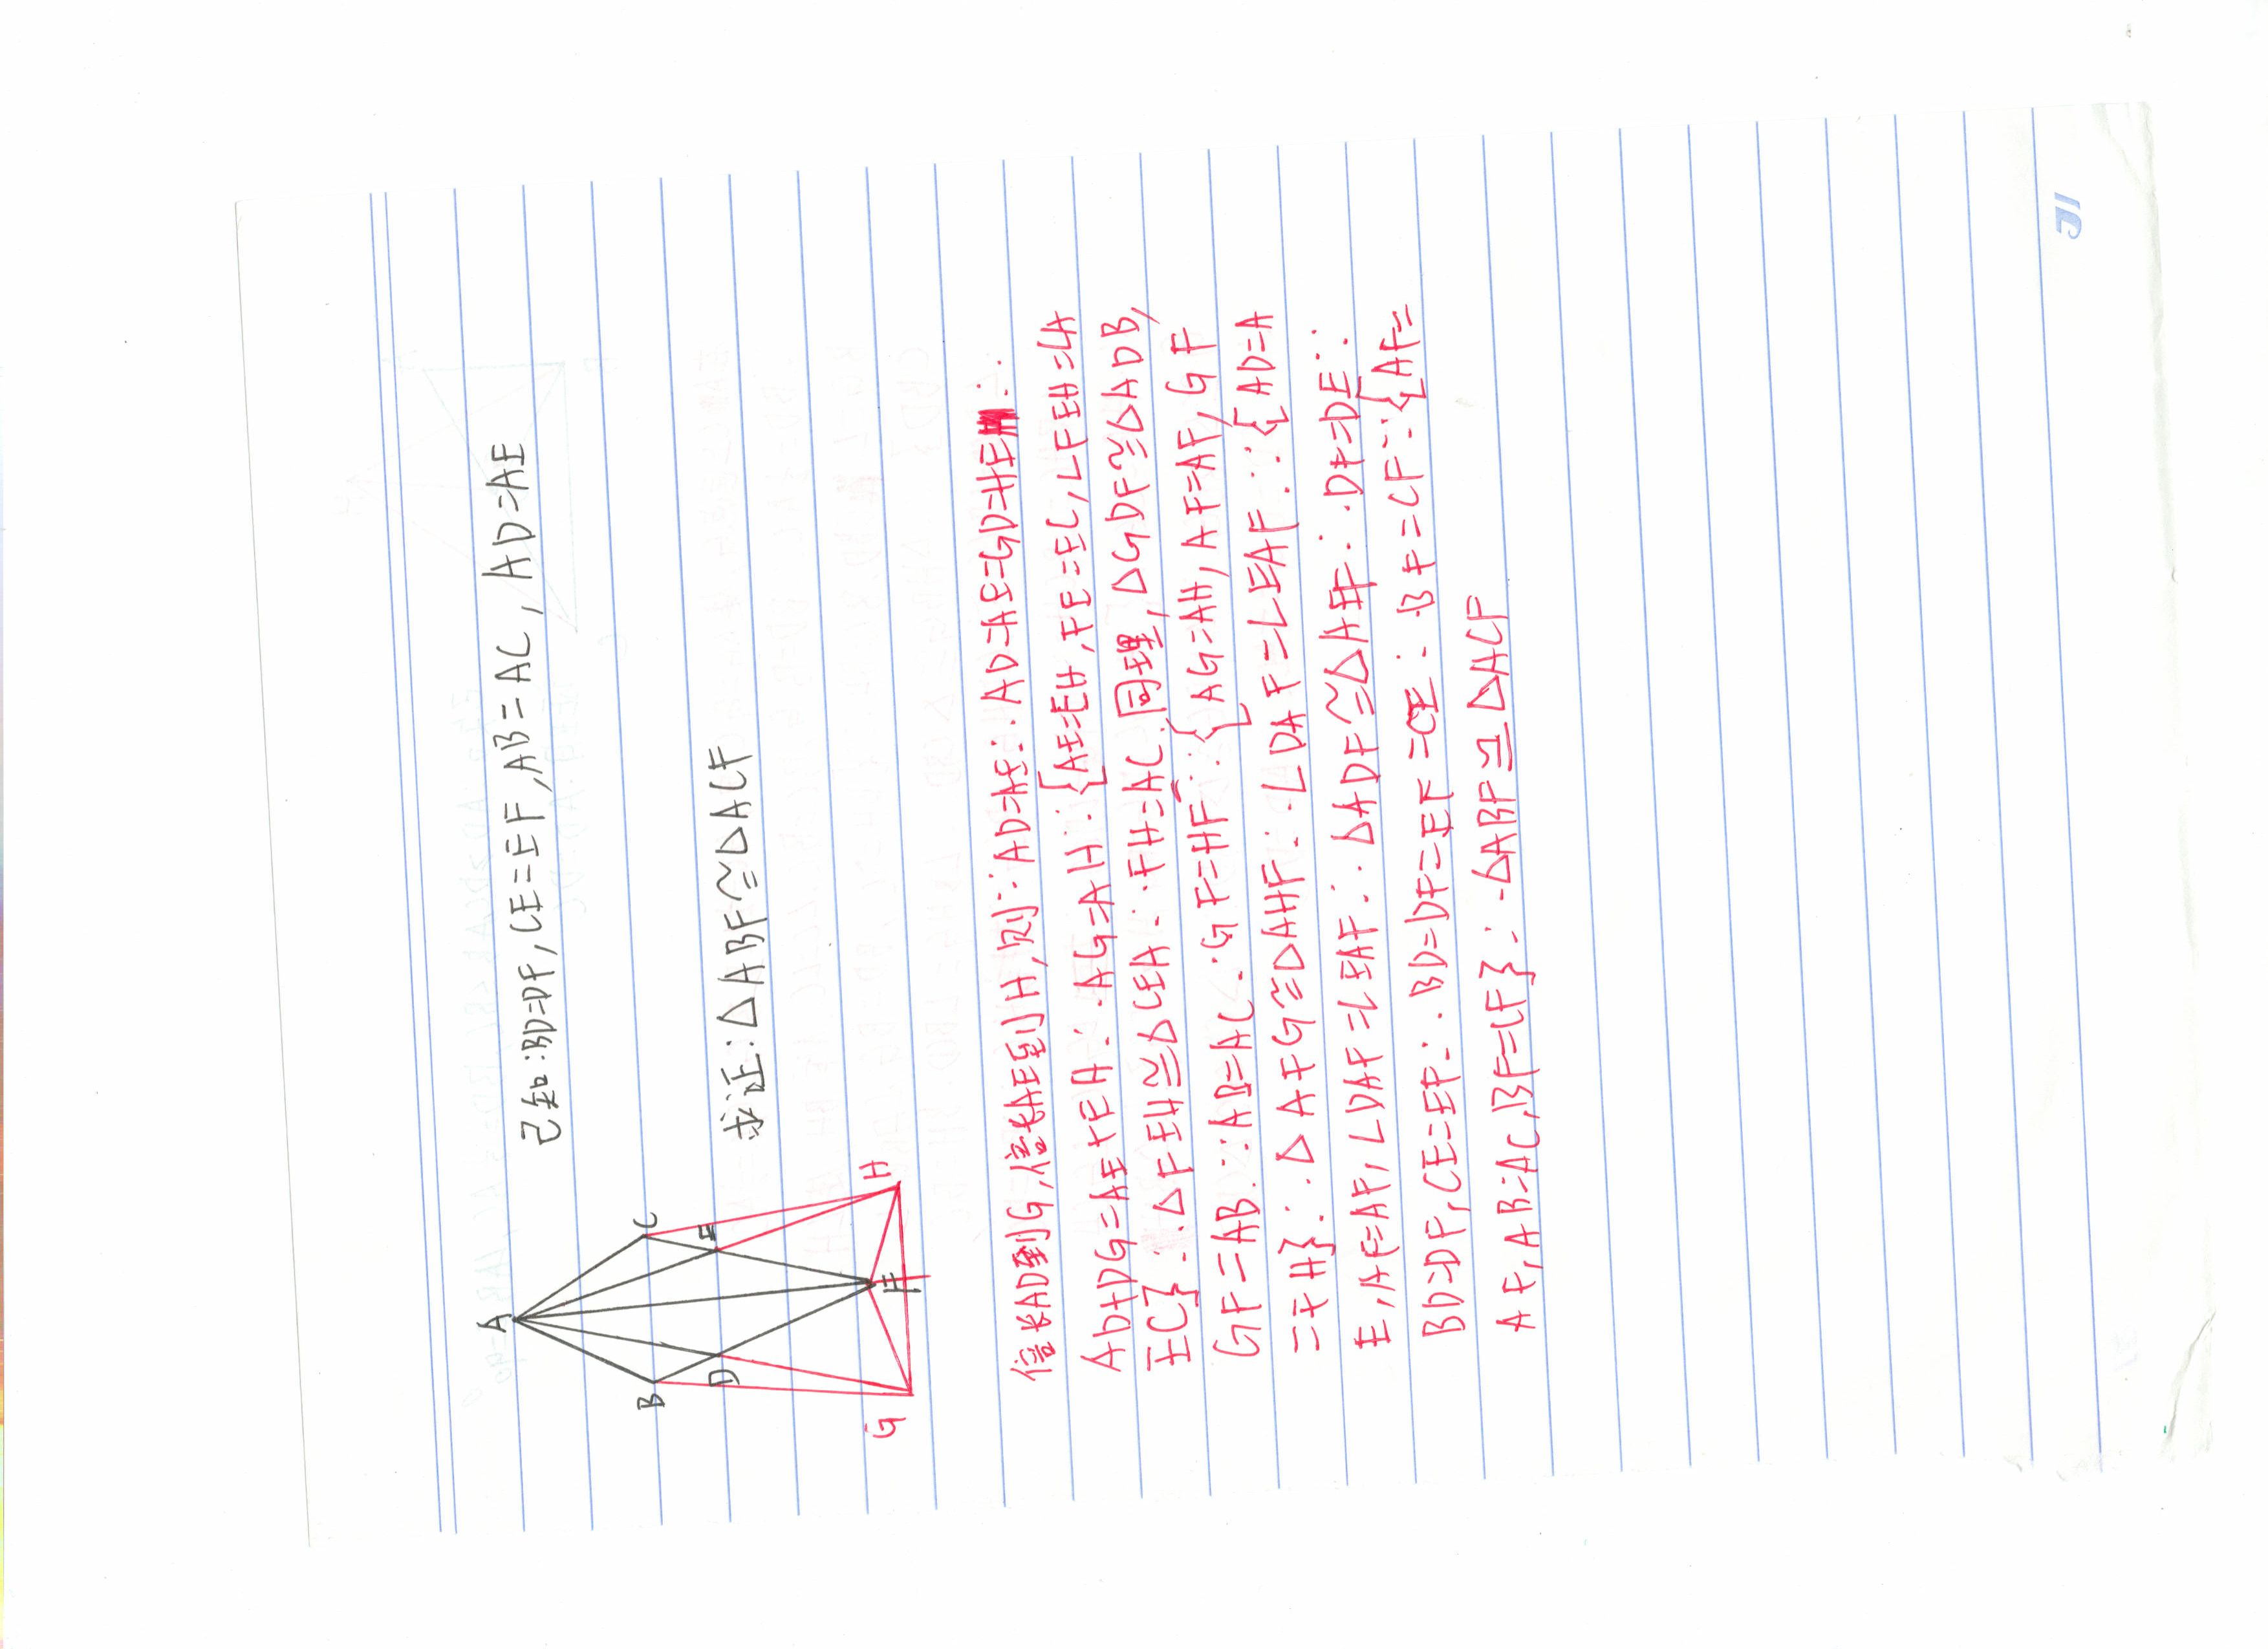 已知:BD=DF,CE=EF,AB=AC,AD=AE
求证:△ABF≌△ACF
A
B
C
D
E
F
G
H
倍长AD到G,倍长AE到H,则∵AD=AE∴AD=AE=GD=HE∴
AD+DG=AE+EH∴AG=AH∵{AE=EH,FE=EC,∠FEH=∠A
EC}∴△FEH≌△CEA∴FH=AC.同理,△GDF≌△ADB,
GF=AB.∵AB=AC∴GF=HF∵{AG=AH,AF=AF,GF
=FH}∴△AFG≌△AHF∴∠DAF=∠EAF∵{AD=A
E,AF=AF,∠DAF=∠EAF∴△ADF≌△AEF∴DF=DE∵
BD=DF,CE=EF∴BD=DF=EF=CE∴BF=CF∵{AF=
AF,AB=AC,BF=CF}∴△ABF≌△ACF